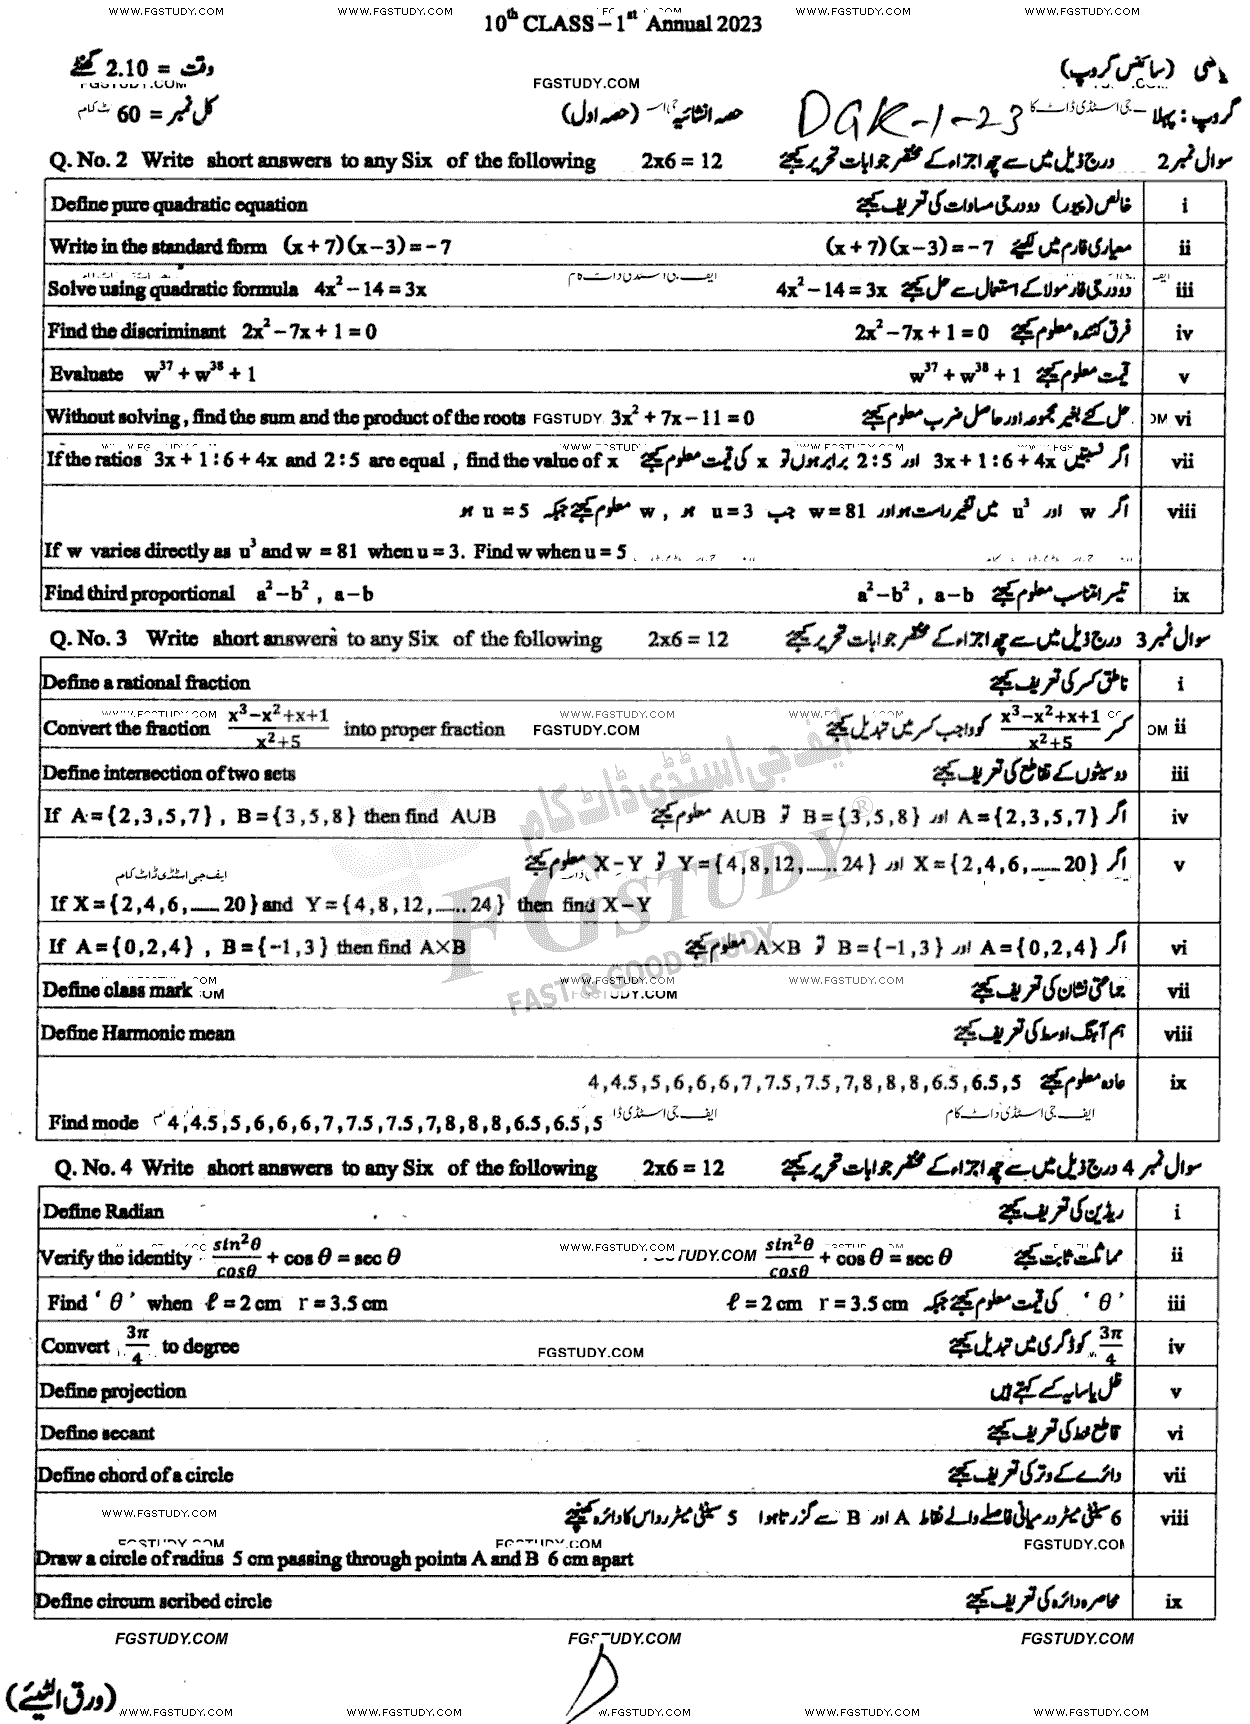 WWW.FGSTUDY.COM WWW.FGSTUDY.COM WWW.FGSTUDY.COM WWW.FGSTUDY.COM
10th CLASS – 1st Annual 2023
وقت = 2.10 گھنٹے FGSTUDY.COM ریاضی (سائنس گروپ)
کل نمبر = 60 حصہ انشائیہ (حصہ اول) DGK-1-23 گروپ : پہلا
Q. No. 2 Write short answers to any Six of the following 2x6 = 12 درج ذیل میں سے چھ اجزاء کے مختصر جوابات تحریر کیجئے سوال نمبر 2
Define pure quadratic equation خالص (پیور) دو درجی مساوات کی تعریف کیجئے i
Write in the standard form (x + 7) (x – 3) = – 7 معیاری فارم میں لکھئے (x + 7) (x – 3) = – 7 ii
ایف جی اسٹڈی ڈاٹ کام
Solve using quadratic formula 4x² – 14 = 3x دو درجی فارمولا کے استعمال سے حل کیجئے 4x² – 14 = 3x iii
Find the discriminant 2x² – 7x + 1 = 0 فرق کنندہ معلوم کیجئے 2x² – 7x + 1 = 0 iv
Evaluate w³⁷ + w³⁸ + 1 قیمت معلوم کیجئے w³⁷ + w³⁸ + 1 v
Without solving , find the sum and the product of the roots FGSTUDY 3x² + 7x – 11 = 0 حل کئے بغیر مجموعہ اور حاصل ضرب معلوم کیجئے vi
If the ratios 3x + 1 : 6 + 4x and 2 : 5 are equal , find the value of x اگر نسبتیں 3x + 1 : 6 + 4x اور 2 : 5 برابر ہوں تو x کی قیمت معلوم کیجئے vii
اگر w اور u³ میں تغیر راست ہو اور w = 81 جب u = 3 ہو , w معلوم کیجئے جبکہ u = 5 ہو viii
If w varies directly as u³ and w = 81 when u = 3. Find w when u = 5
Find third proportional a² – b² , a – b تیسرا تناسب معلوم کیجئے a² – b² , a – b ix
Q. No. 3 Write short answers to any Six of the following 2x6 = 12 درج ذیل میں سے چھ اجزاء کے مختصر جوابات تحریر کیجئے سوال نمبر 3
Define a rational fraction ناطق کسر کی تعریف کیجئے i
WWW.FGSTUDY.COM WWW.FGSTUDY.COM
Convert the fraction x³–x²+x+1 / x²+5 into proper fraction FGSTUDY.COM کسر x³–x²+x+1 / x²+5 کو واجب کسر میں تبدیل کیجئے ii
Define intersection of two sets دو سیٹوں کے تقاطع کی تعریف کیجئے iii
If A = {2,3,5,7} , B = {3,5,8} then find AUB اگر A = {2,3,5,7} اور B = {3,5,8} تو AUB معلوم کیجئے iv
اگر X = {2,4,6,......20} اور Y = {4,8,12,......24} تو X – Y معلوم کیجئے v
ایف جی اسٹڈی ڈاٹ کام
If X = {2,4,6,......20} and Y = {4,8,12,......24} then find X – Y
If A = {0,2,4} , B = {–1,3} then find A×B اگر A = {0,2,4} اور B = {–1,3} تو A×B معلوم کیجئے vi
WWW.FGSTUDY.COM WWW.FGSTUDY.COM
Define class mark جماعتی نشان کی تعریف کیجئے vii
ایف جی اسٹڈی ڈاٹ کام
FGSTUDY ®
FAST & GOOD STUDY
Define Harmonic mean ہم آہنگ اوسط کی تعریف کیجئے viii
عادہ معلوم کیجئے 4,4.5,5,6,6,6,7,7.5,7.5,7,8,8,8,6.5,6.5,5 ix
Find mode 4,4.5,5,6,6,6,7,7.5,7.5,7,8,8,8,6.5,6.5,5 ایف جی اسٹڈی ڈاٹ کام
Q. No. 4 Write short answers to any Six of the following 2x6 = 12 درج ذیل میں سے چھ اجزاء کے مختصر جوابات تحریر کیجئے سوال نمبر 4
Define Radian ریڈین کی تعریف کیجئے i
WWW.FGSTUDY.COM
Verify the identity sin²θ / cosθ + cos θ = sec θ مماثلت ثابت کیجئے sin²θ / cosθ + cos θ = sec θ ii
Find ‘ θ ’ when ℓ = 2 cm r = 3.5 cm ‘ θ ’ کی قیمت معلوم کیجئے جبکہ ℓ = 2 cm r = 3.5 cm iii
Convert 3π / 4 to degree FGSTUDY.COM 3π / 4 کو ڈگری میں تبدیل کیجئے iv
Define projection ظل یا سایہ کسے کہتے ہیں v
Define secant قاطع خط کی تعریف کیجئے vi
Define chord of a circle دائرے کے وتر کی تعریف کیجئے vii
WWW.FGSTUDY.COM 6 سینٹی میٹر درمیانی فاصلے والے نقاط A اور B سے گزرتا ہوا 5 سینٹی میٹر رداس کا دائرہ کھینچئے viii
FGSTUDY.COM FGSTUDY.COM FGSTUDY.COM
Draw a circle of radius 5 cm passing through points A and B 6 cm apart
Define circum scribed circle محاصرہ دائرہ کی تعریف کیجئے ix
FGSTUDY.COM FGSTUDY.COM FGSTUDY.COM
(ورق الٹیئے)
WWW.FGSTUDY.COM WWW.FGSTUDY.COM W.FGSTUDY.COM WWW.FGSTUDY.COM WWW.FGSTUDY.COM